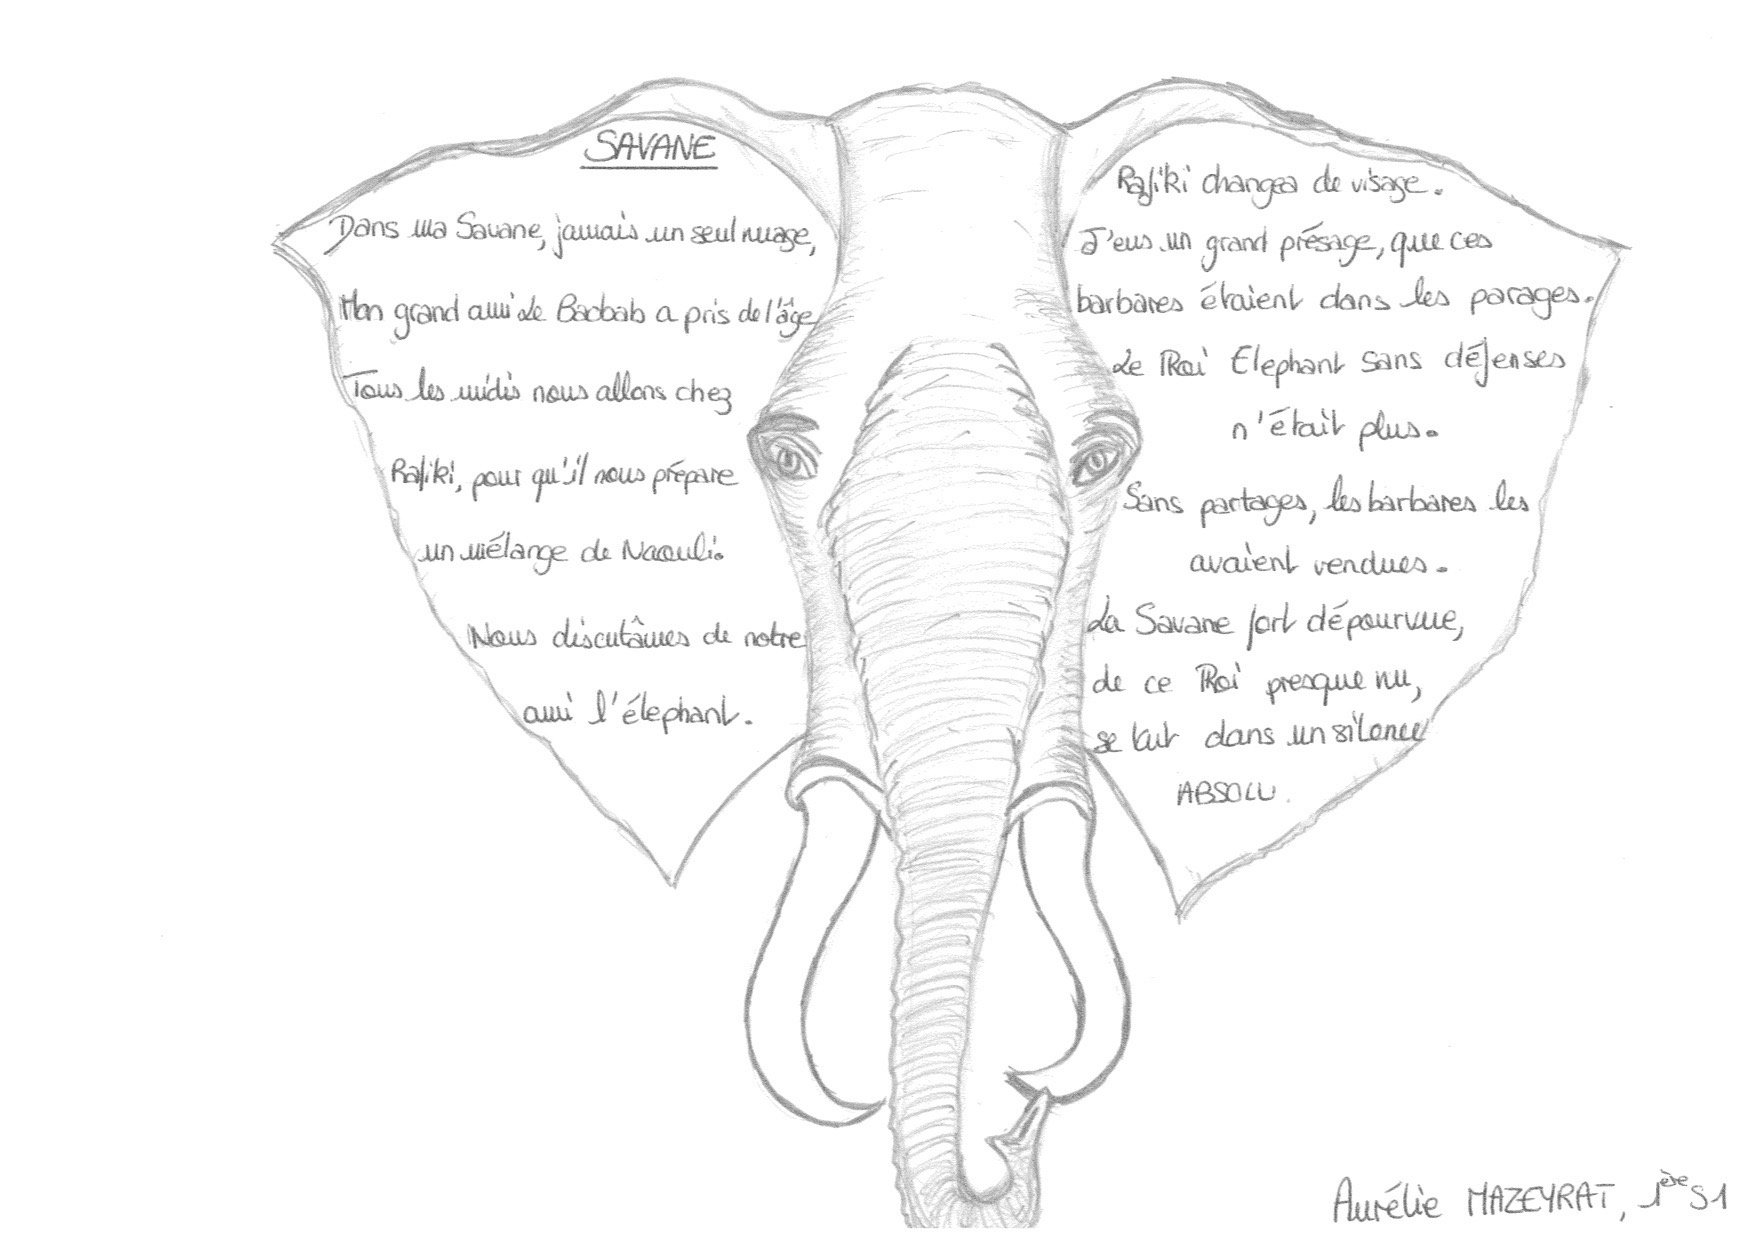 SAVANE
Dans ma Savane, jamais un seul nuage,
Mon grand ami Le Baobab a pris de l'âge
Tous les midis nous allons chez
Rafiki, pour qu'il nous prépare
un mélange de Naouli.
Nous discutâmes de notre
ami l'élephant.
Rafiki changea de visage.
J'eus un grand présage, que ces
barbares étaient dans les parages.
Le Roi Elephant sans défenses
n'était plus.
Sans partages, les barbares les
avaient vendues.
La Savane fort dépourvue,
de ce Roi presque nu,
se tut dans un silence
ABSOLU.
Aurélie MAZEYRAT, 1ère S1